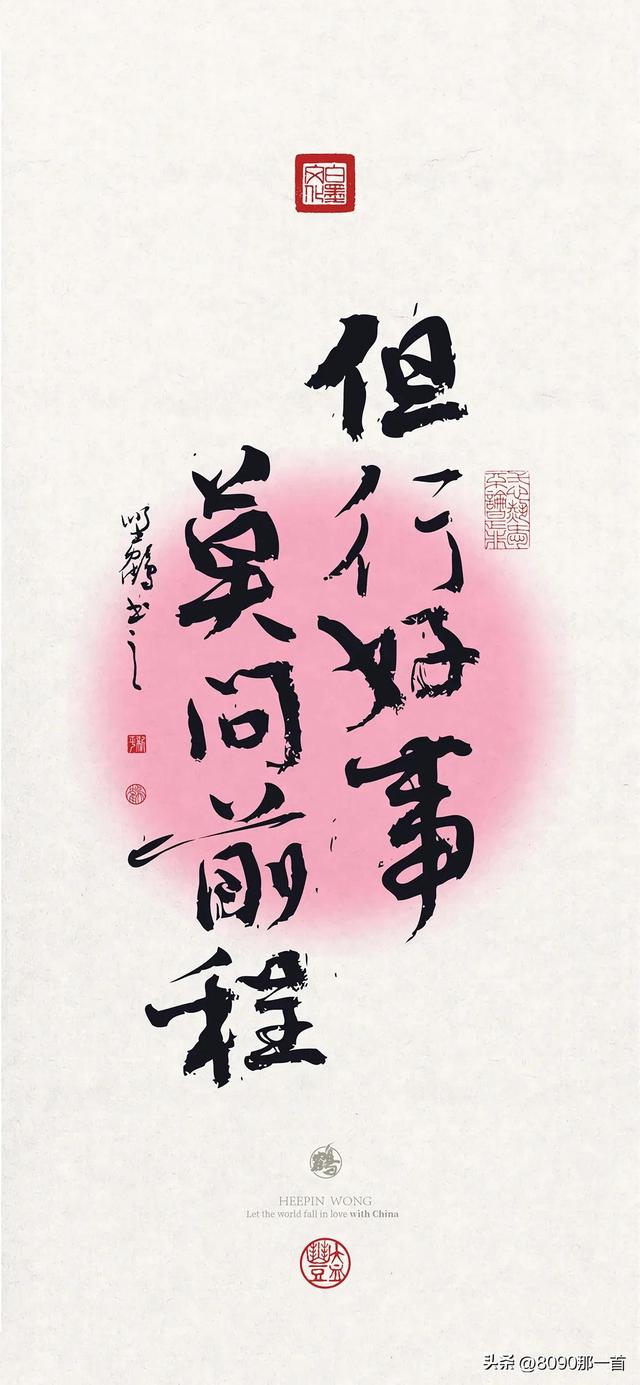 白墨
文化
但行好事
莫问前程
HEEPIN WONG
Let the world fall in love with China
头条 @8090那一首